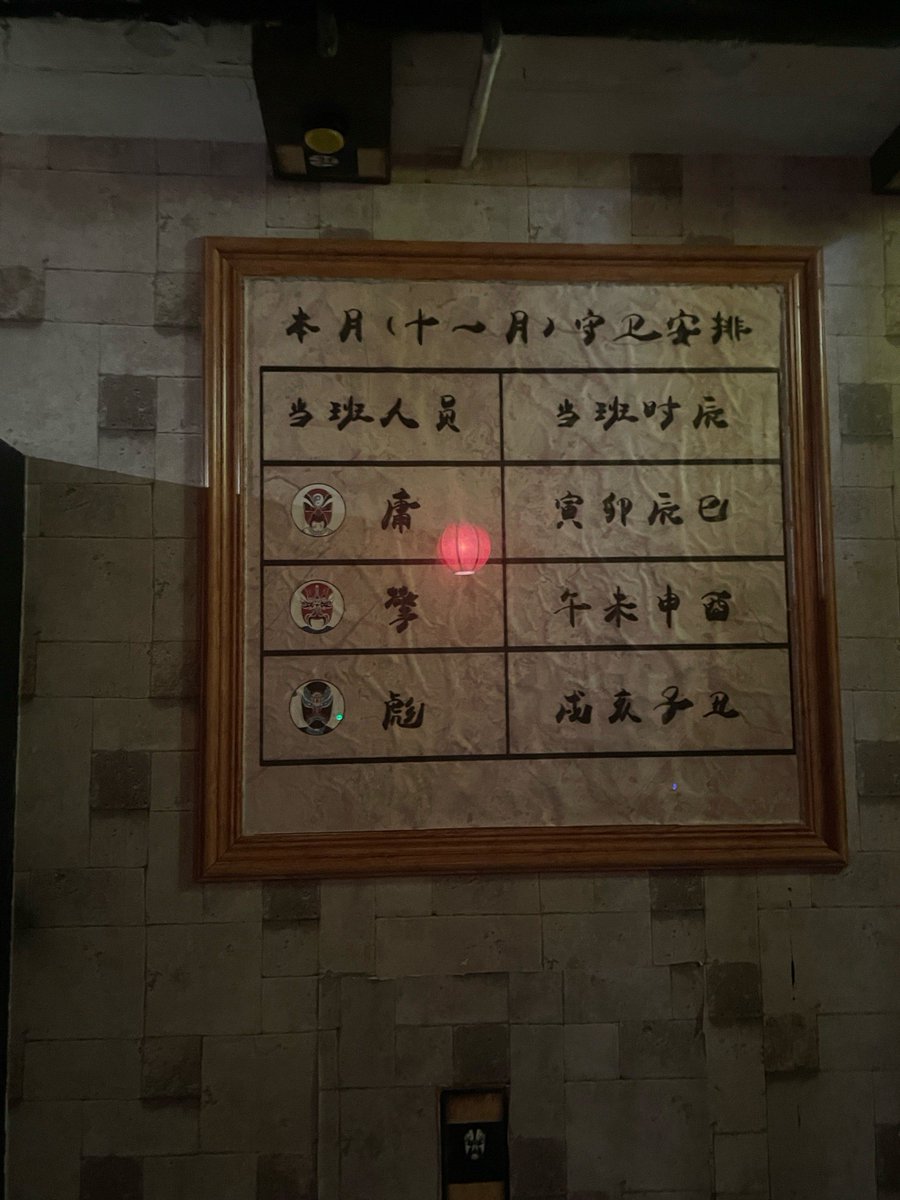 本月(十一月)守卫安排
当班人员 当班时辰
庸 寅卯辰巳
擎 午未申酉
彪 戌亥子丑